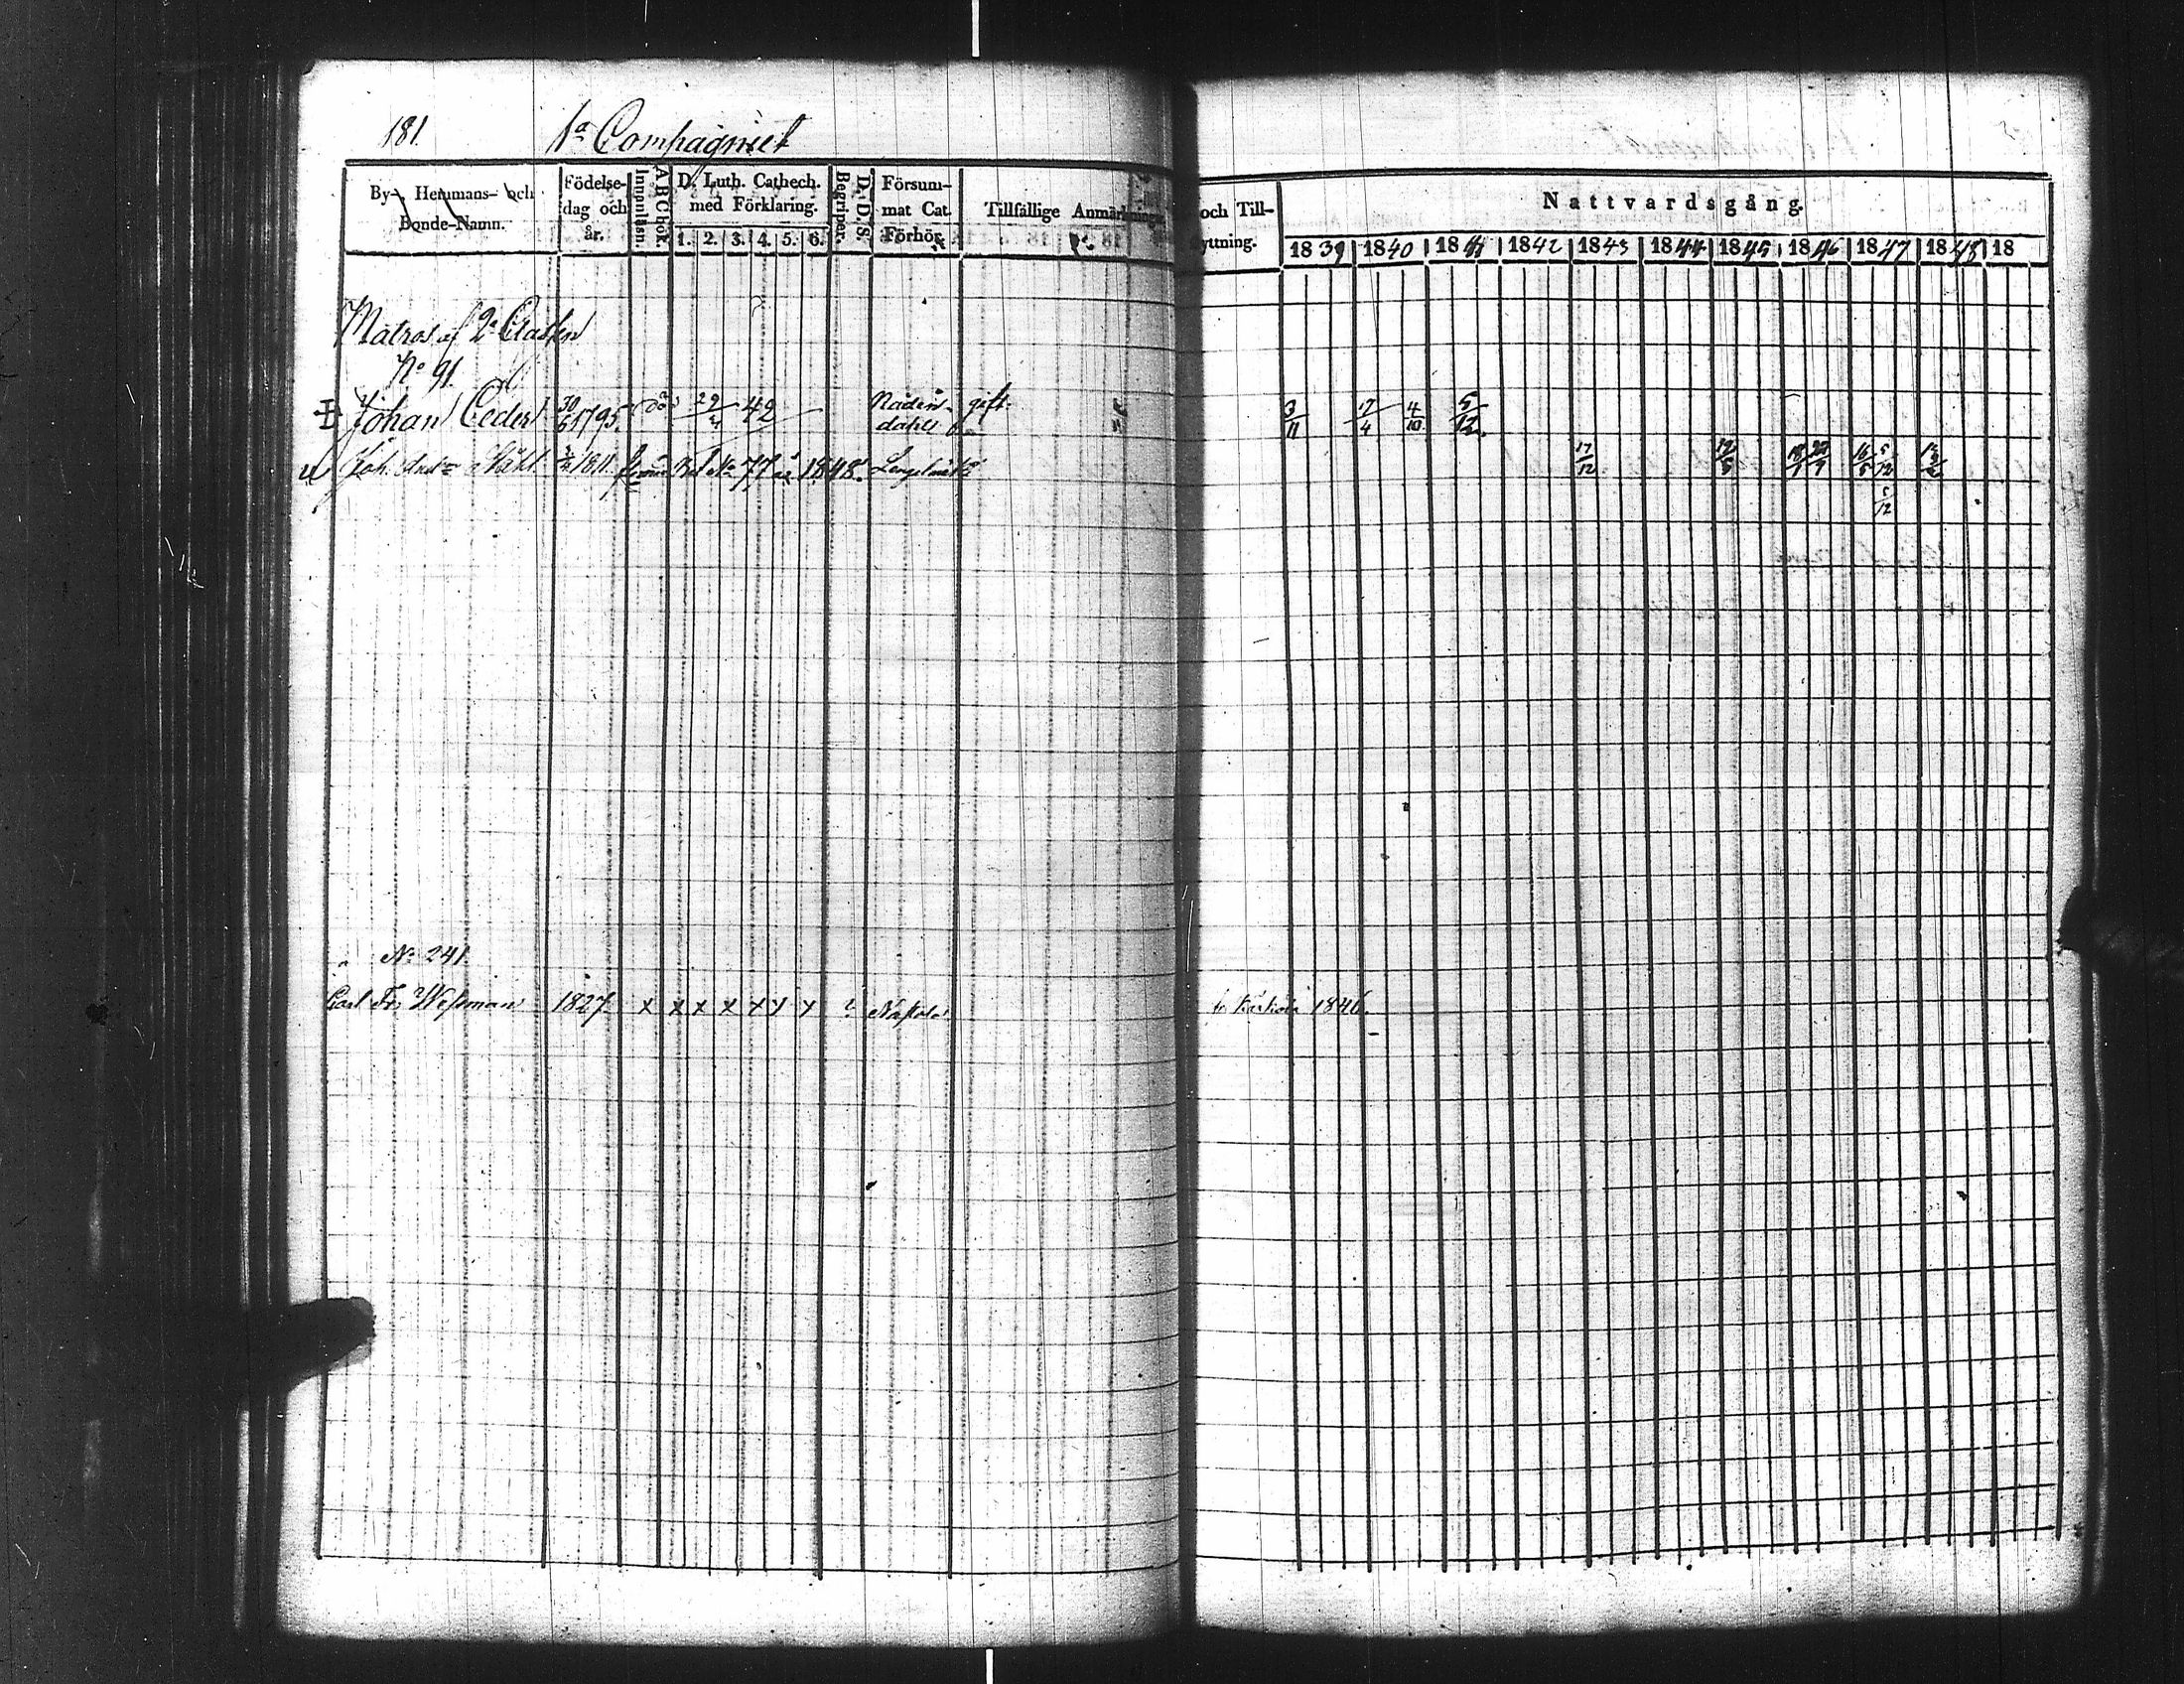 181. 1a Compagniet
By- Hemmans- och Bonde-Namn. Födelse-dag och år. A B C bok. Innanläsn. D. Luth. Cathech. med Förklaring. 1. 2. 3. 4. 5. 6. D. D. S. Begriper. Försum-mat Cat. Förhör. Tillfällige Anmärkningar och Till- yttning. Nattvardsgång.
1839 1840 1841 1842 1843 1844 1845 1846 1847 1848 18
Matros af 2a Classen
No 91.
Johan Ceder 30/6 1795. död 29/4 42 Nådendahls gift. 3/11 17/4 4/10 5/12.
Joh. And. Ståhl 1811. No 77 år 1848. Lengelmäki 17/12 19/5 18/1 20/9 16/5 5/12
5/12
No 241.
Carl Fr. Wessman 1827. x x x x x x x Naskola fr. 1846.